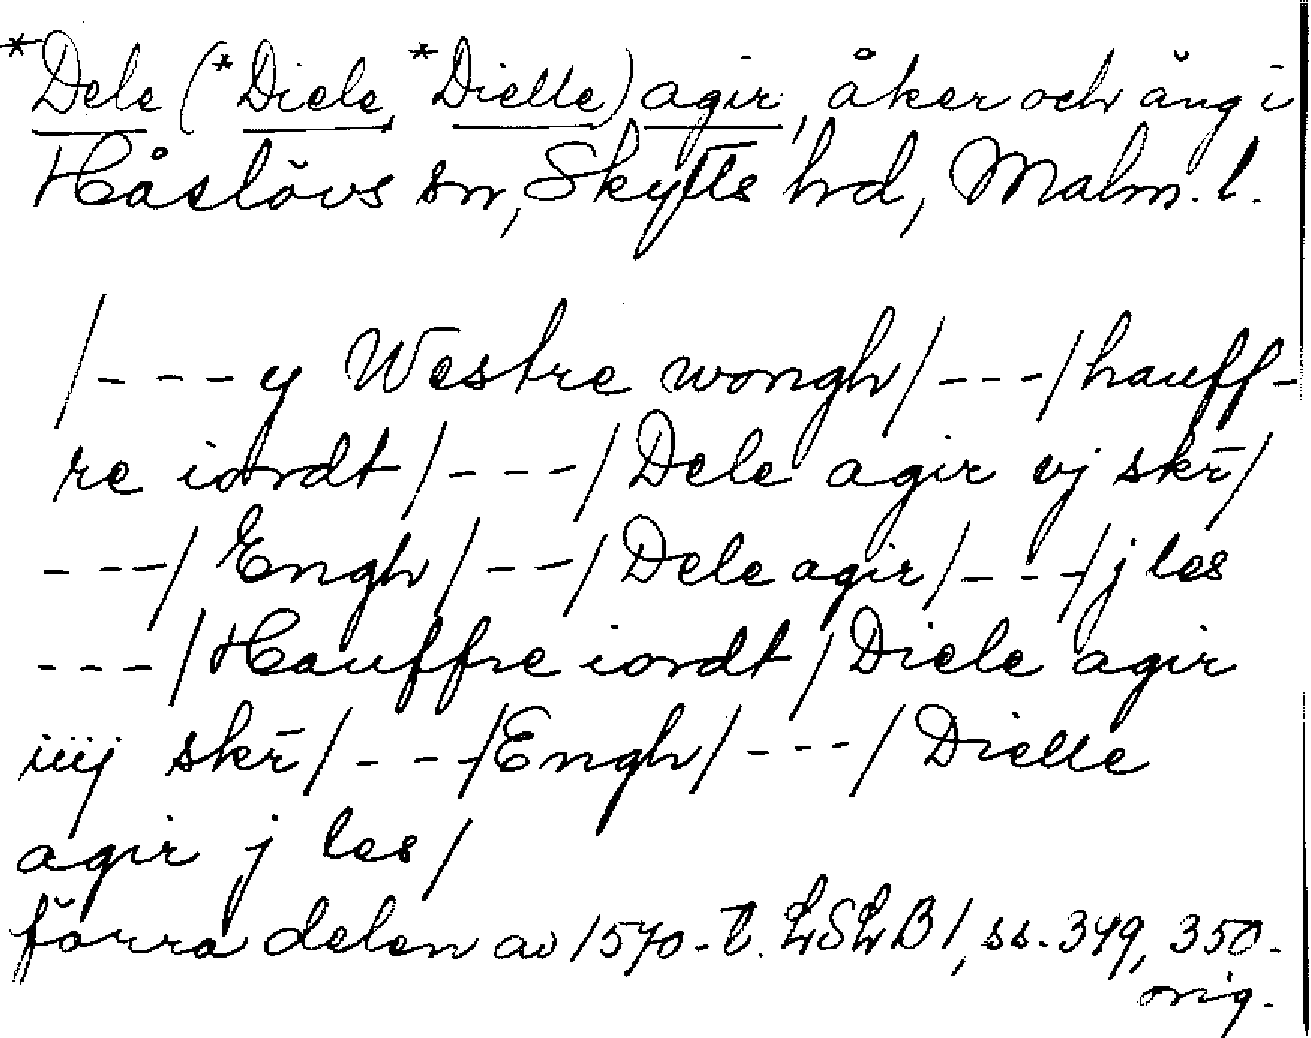 *Dele (*Diele, *Dielle) agir, åker och äng i
Håslövs sn, Skytts hd, Malm. l.
/---y Westre wongh/---/hauff-
re iordt/---/Dele agir vj skr̄/
---/Engh/---/Dele agir/---/j les
---/Hauffre iordt/Diele agir
iiij skr̄/---/Engh/---/Dielle
agir j les/
förra delen av 1570-t. LSLB 1, ss. 349, 350.
orig.